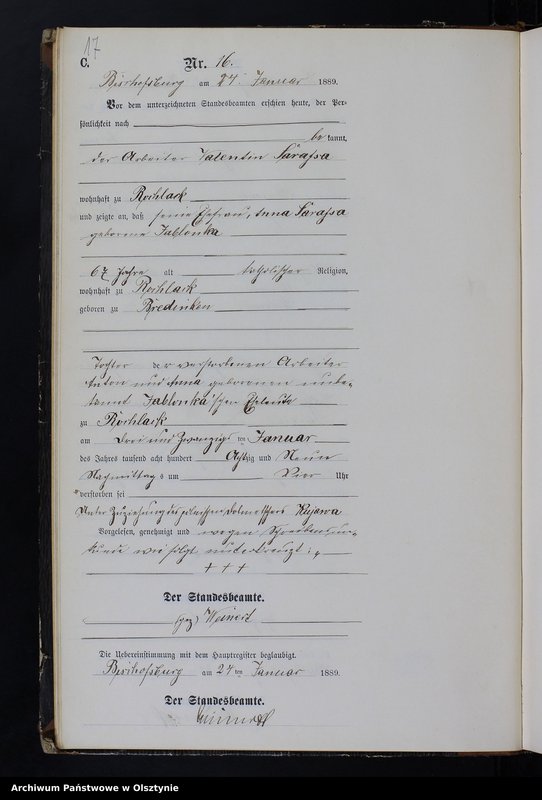 17
C.
Nr. 16.
Bischofsburg am 24 Januar 1889.
Vor dem unterzeichneten Standesbeamten erschien heute, der Per-
sönlichkeit nach
be kannt,
der Arbeiter Valentin Parassa
wohnhaft zu Rochlack
und zeigte an, daß seine Ehefrau, Anna
geborene Jablonka
67 Jahre alt katholischer Religion,
wohnhaft zu Rochlack
geboren zu Bredinken
Tochter der verstorbenen Arbeiter
Anton und Anna geborenen unbe-
kannt Jablonka'schen Eheleute
zu Rochlack
am drei und zwanzigsten Januar
des Jahres tausend acht hundert Achtzig und Neun
Nachmittags um Vier Uhr
verstorben sei
Unter Zuziehung des polnischen Dolmetschers Kujawa
Vorgelesen, genehmigt und wegen Schreibensun-
kunde wie folgt unterkreuzt:
+ + +
Der Standesbeamte.
(gez) Weinert
Die Uebereinstimmung mit dem Hauptregister beglaubigt.
Bischofsburg am 24 ten Januar 1889.
Der Standesbeamte.
Weinert
Archiwum Państwowe w Olsztynie